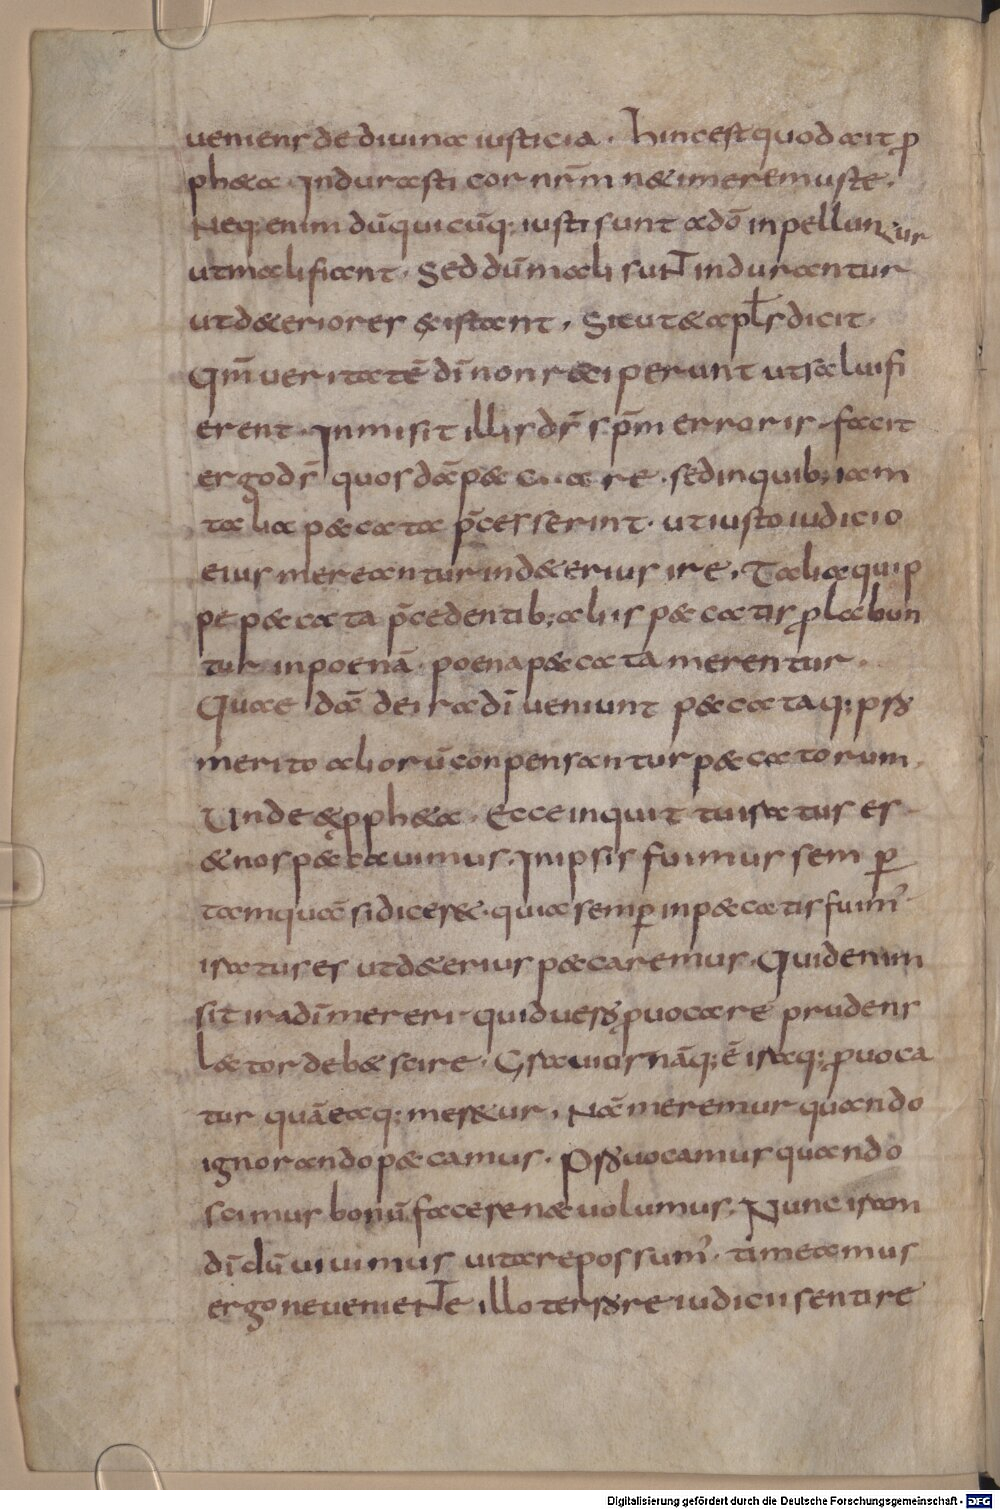 ueniens de diuina iusticia. hinc est quod ait p̱
ph&a. Indurasti cor nr̄m n& imeremus te.
Neq; enim dū quicūq; iusti sunt a dō inpelluntur
ut malificent. Sed dū mali suNT indurantur
ut d&eriores existant. Sicut & apl̄s dicit.
Qm̄ ueritatē dī non receperunt ut salui fi
erent. Inmisit illis ds̄ sp̄m erroris. facit
ergo ds̄ quosdā peccare. sed in quib; iam
talia peccata p̄cesserint. ut iusto iudicio
eius mereantur in d&erius ire. Talia quip
pe peccata p̄cedentib; aliis peccatis ꝓlabun
tur in poenā. poena peccata merentur.
Quae dā de ira dī ueniunt peccataq; p̱ s&
merito aliorū conpensantur peccatorum.
Unde & ꝓph&a. Ecce inquit tu iratus es
& nos peccauimus. In ipsis fuimus semp̱
tamquā si dicer&. quia semp̱ in peccatis fuim'
iratus es ut d&erius peccaremus. Quid enim
sit ira dī mereri. quid uero ꝓuocare prudens
lector deb& scire. Grauior nāq; ē iraq; ꝓuoca
tur quā eaq; mer&ur. Nā meremur quando
ignorando peccamus. ꝓuocamus quando
scimus bonū facere nec uolumus. Nunc iram
dī dū uiuimus uitare possum'. timeamus
ergo ne ueniente illo terrore iudicii sentire